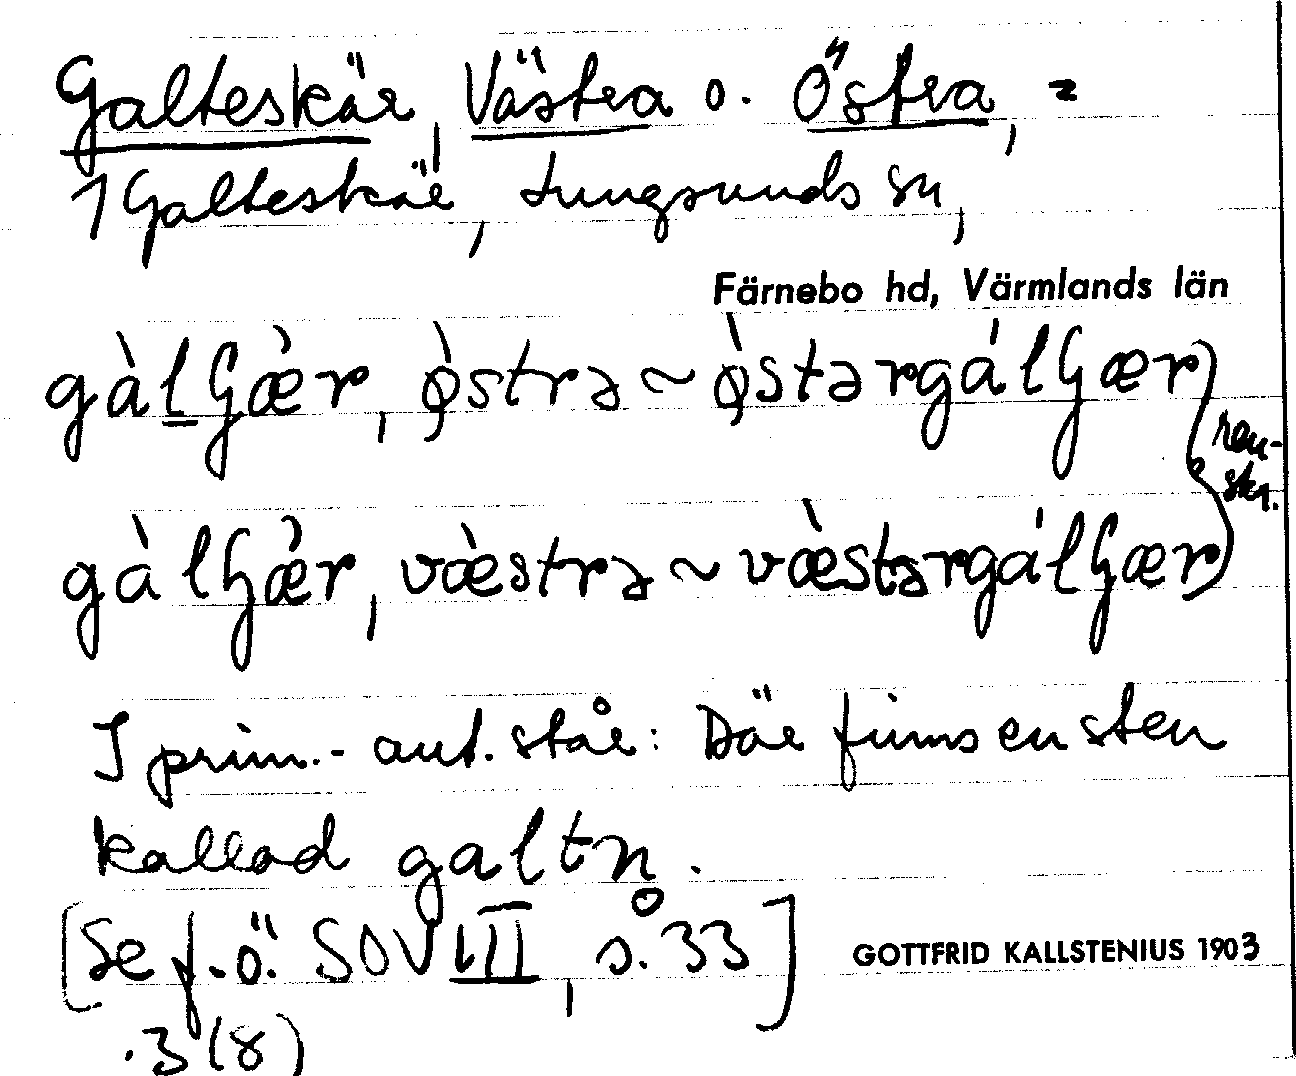 Galteskär, Västra o. Östra, =
1 Galteskär, Lungsunds sn,
Färnebo hd, Värmlands län
gàlʃæ̀r, ø̀strə ~ ø̀stərgálʃær
ren-
skr.
gàlʃæ̀r, væ̀strə ~ væ̀stərgálʃær
I prim.-ant. står: Där finns en sten
kallad galtn̥.
[Se f.ö. SOV III, s. 33]
GOTTFRID KALLSTENIUS 1903
.3 (8)